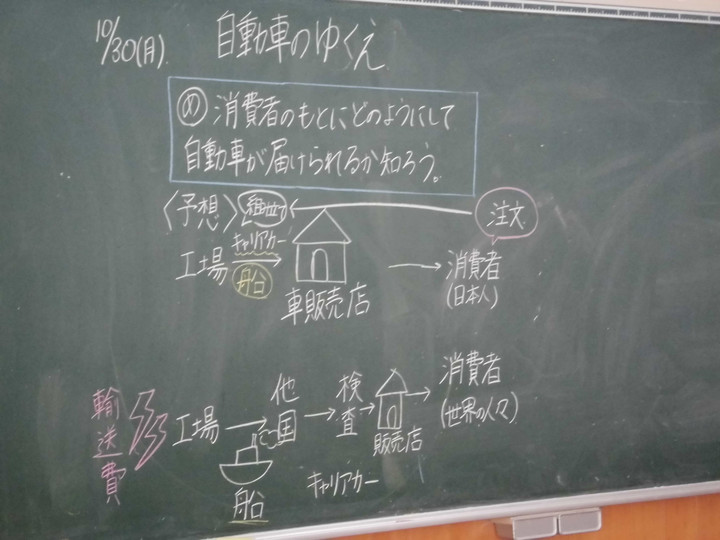 10/30(月)
自動車のゆくえ
め 消費者のもとにどのようにして
自動車が届けられるか知ろう。
〈予想〉 組立 注文
キャリアカー
工場 消費者
船 (日本人)
車販売店
消費者
他国 検査
輸送費 工場 (世界の人々)
販売店
船 キャリアカー